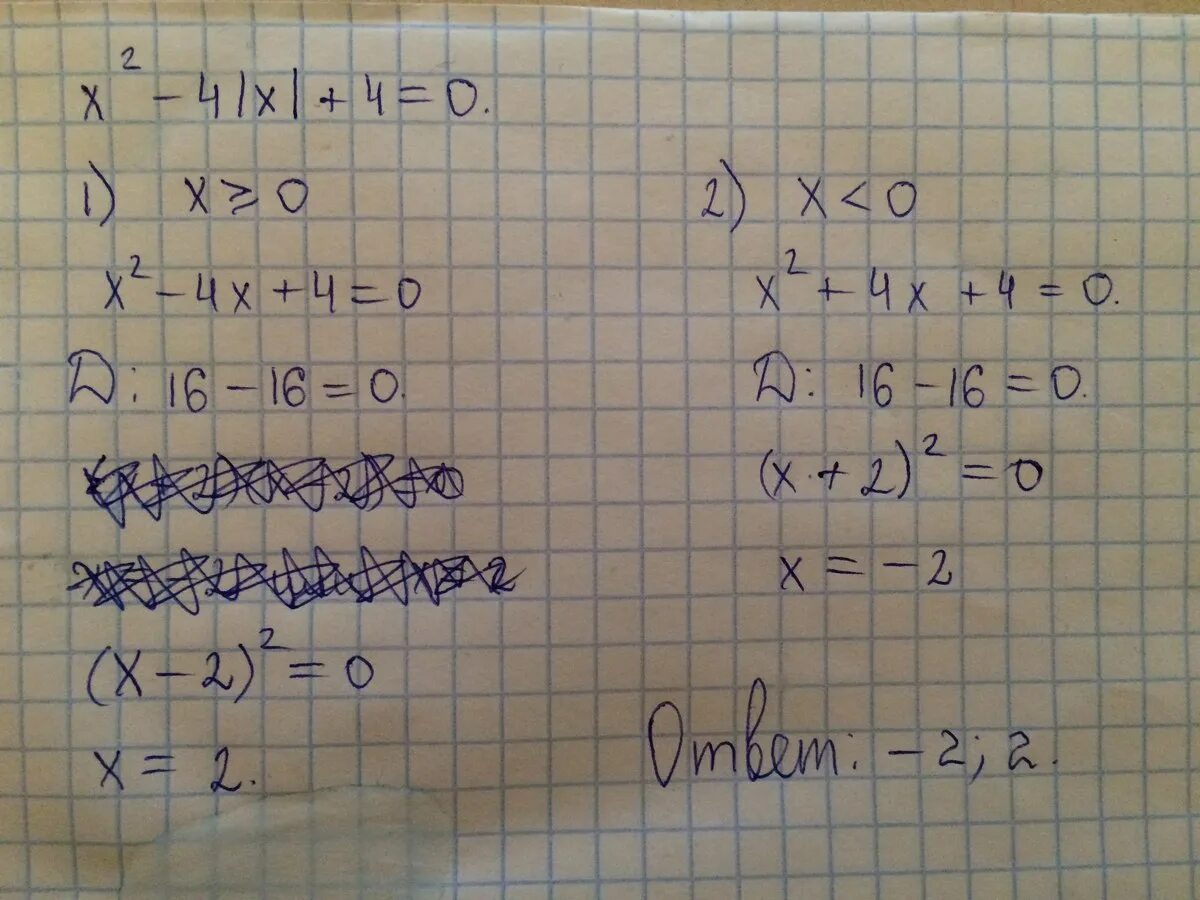 x² - 4|x| + 4 = 0.
1) x ≥ 0
x² - 4x + 4 = 0
D: 16 - 16 = 0.
(x - 2)² = 0
x = 2.
2) x < 0
x² + 4x + 4 = 0.
D: 16 - 16 = 0.
(x + 2)² = 0
x = -2
Ответ: -2; 2.